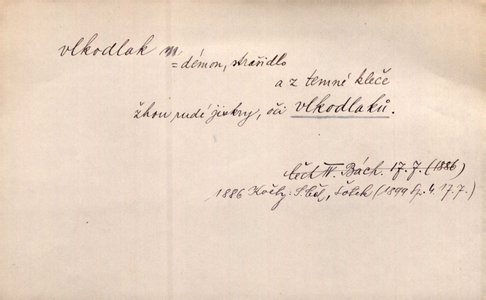 vlkodlak m
= démon, strašidlo
a z temné kleče
žhou rudé jiskry, oči vlkodlaků.
Čech V. Bách. 17. 7. (1886)
1886 Sv. Čech, (1899 17.7.)